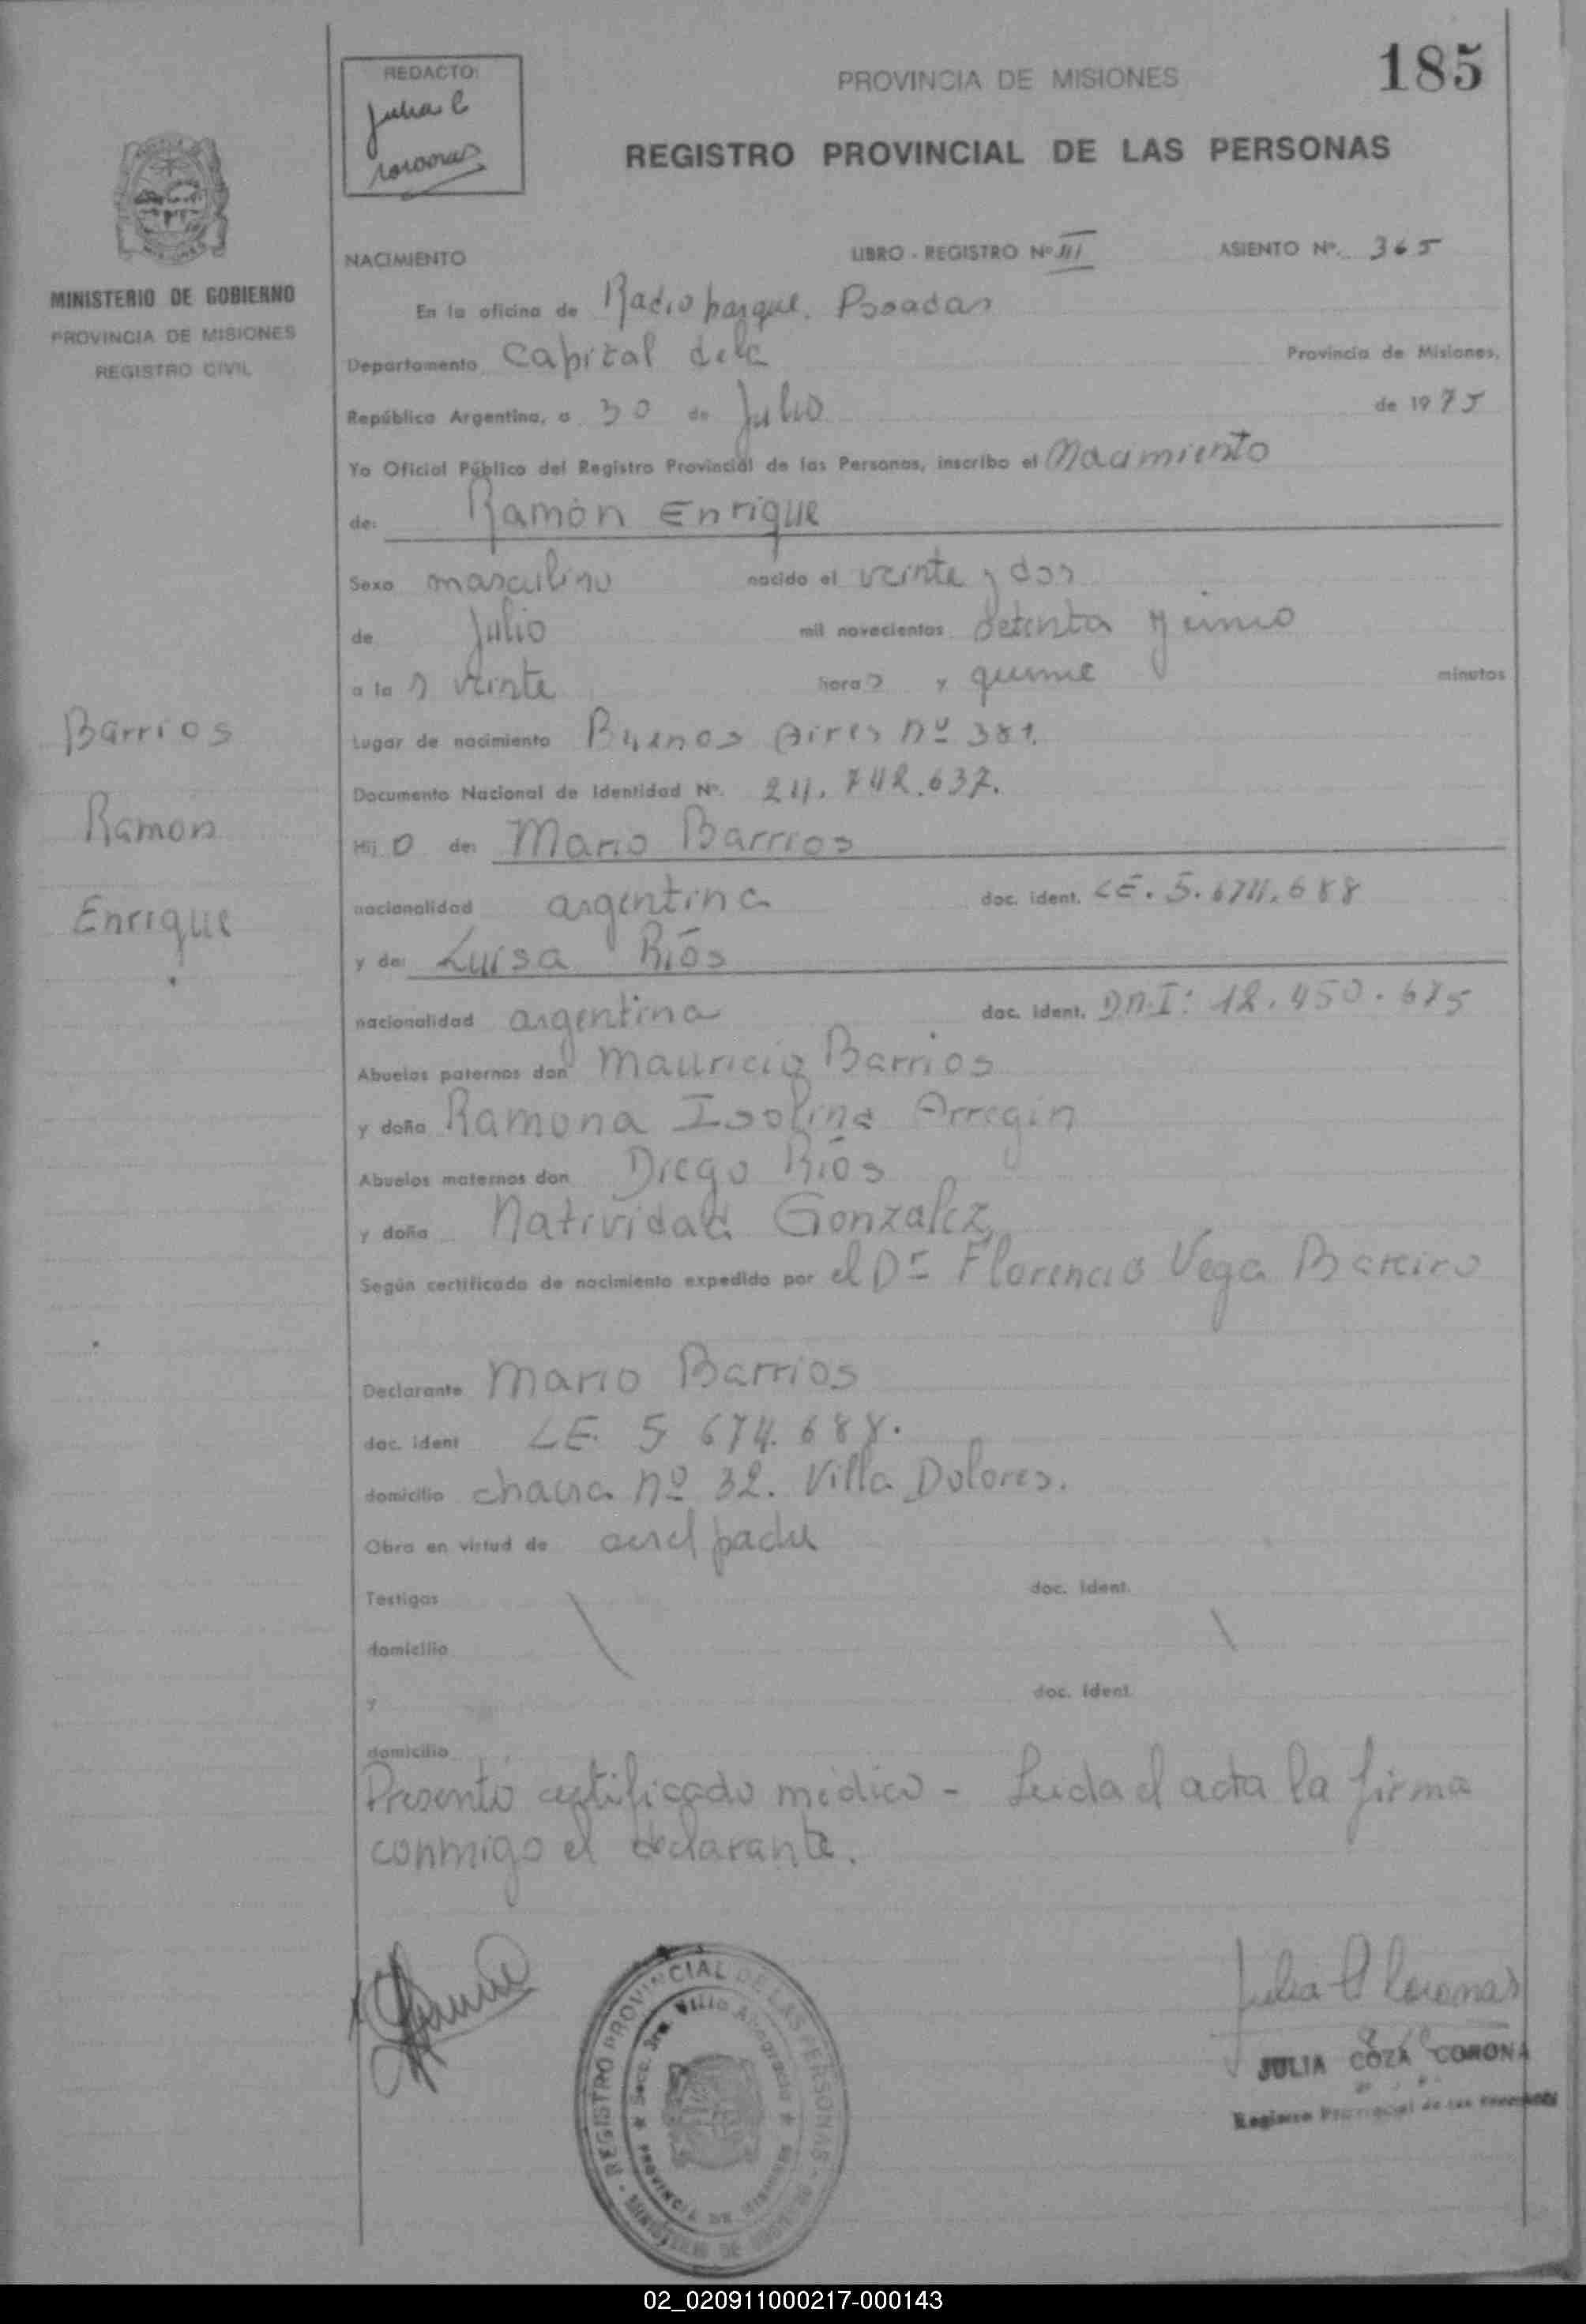 185
REDACTO:
Julia C
Coronas
PROVINCIA DE MISIONES
REGISTRO PROVINCIAL DE LAS PERSONAS
MINISTERIO DE GOBIERNO
PROVINCIA DE MISIONES
REGISTRO CIVIL
NACIMIENTO LIBRO - REGISTRO Nº III ASIENTO Nº. 365
En la oficina de Radio parque. Posadas
Departamento Capital de la Provincia de Misiones,
República Argentina, a 30 de Julio de 1975
Yo Oficial Público del Registro Provincial de las Personas, inscribo el Nacimiento
de: Ramón Enrique
Sexo masculino nacido el veinte y dos
de Julio mil novecientos setenta y cinco
a la s veinte hora s y quince minutos
Barrios
Ramon
Enrique
Lugar de nacimiento Buenos Aires Nº 381.
Documento Nacional de Identidad Nº. 24.742.637.
Hij o de: Mario Barrios
nacionalidad argentina doc. ident. LE. 5.674.688
y de: Luisa Ríos
nacionalidad argentina doc. ident. D.N.I: 12.450.675
Abuelos paternos don Mauricio Barrios
y doña Ramona Isolina Arregin
Abuelos maternos don Diego Ríos
y doña Natividad Gonzalez
Según certificado de nacimiento expedido por el Dr Florencio Vega Bareiro
Declarante Mario Barrios
doc. ident LE. 5 674.688.
domicilio chacra nº 32. Villa Dolores.
Obra en virtud de ser el padre
Testigos doc. ident.
domicilio
y doc. ident.
domicilio
Presentó certificado médico - Leida el acta la firma
conmigo el declarante.
REGISTRO PROVINCIAL DE LAS PERSONAS - MINISTERIO DE GOBIERNO
Secc. 3ra. Villa PROVINCIA DE MISIONES
Julia C Coronas
JULIA COZA CORONA
Registro Provincial de las Personas
02_020911000217-000143